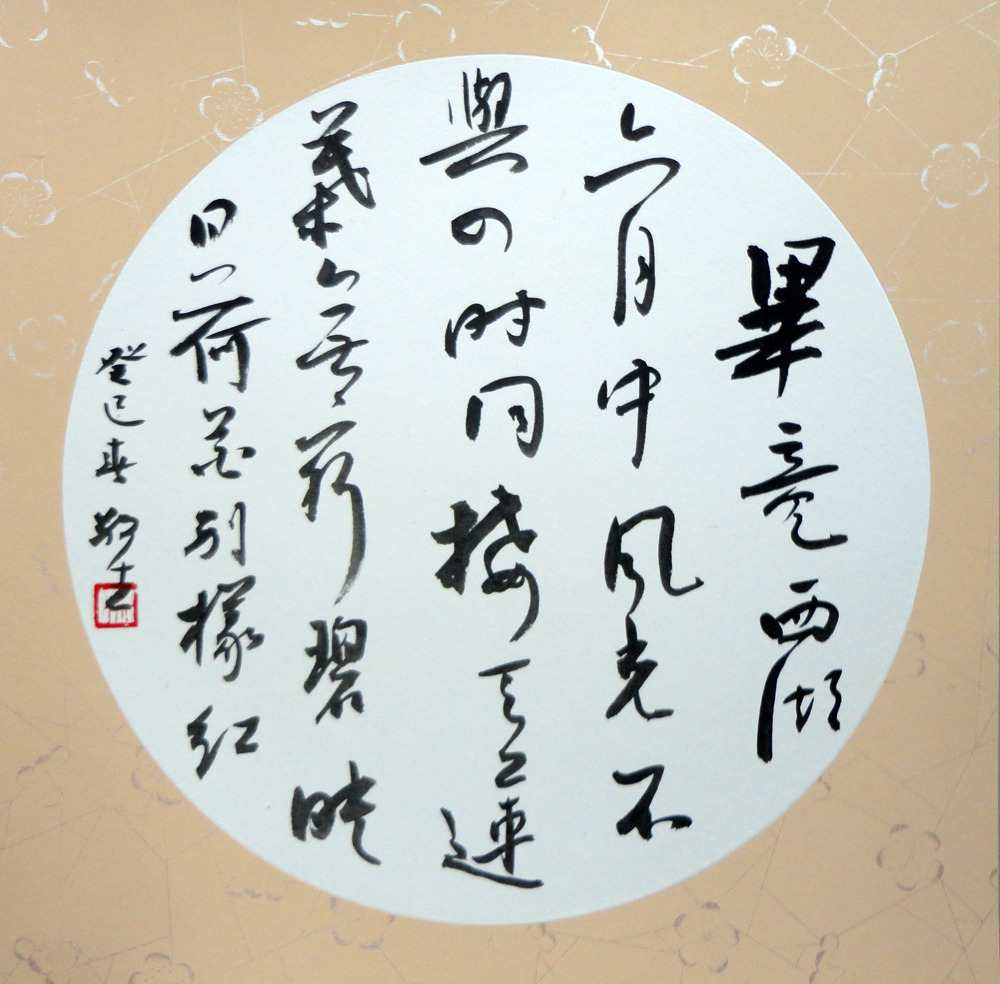 畢竟西湖
六月中風光不
與四时同接天蓮
葉無窮碧映
日荷花别樣紅
癸巳春